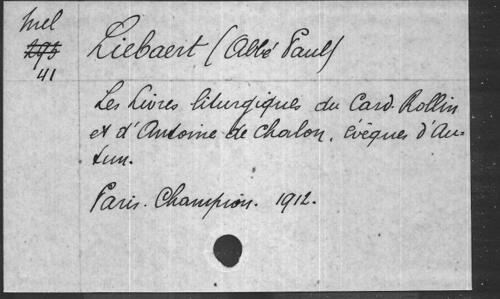 Mel
295
41
Liebaert (Abbé Paul)
Les Livres liturgiques du Card. Rollin
et d'Antoine de Chalon, évêques d'Au-
tun.
Paris. Champion. 1912.